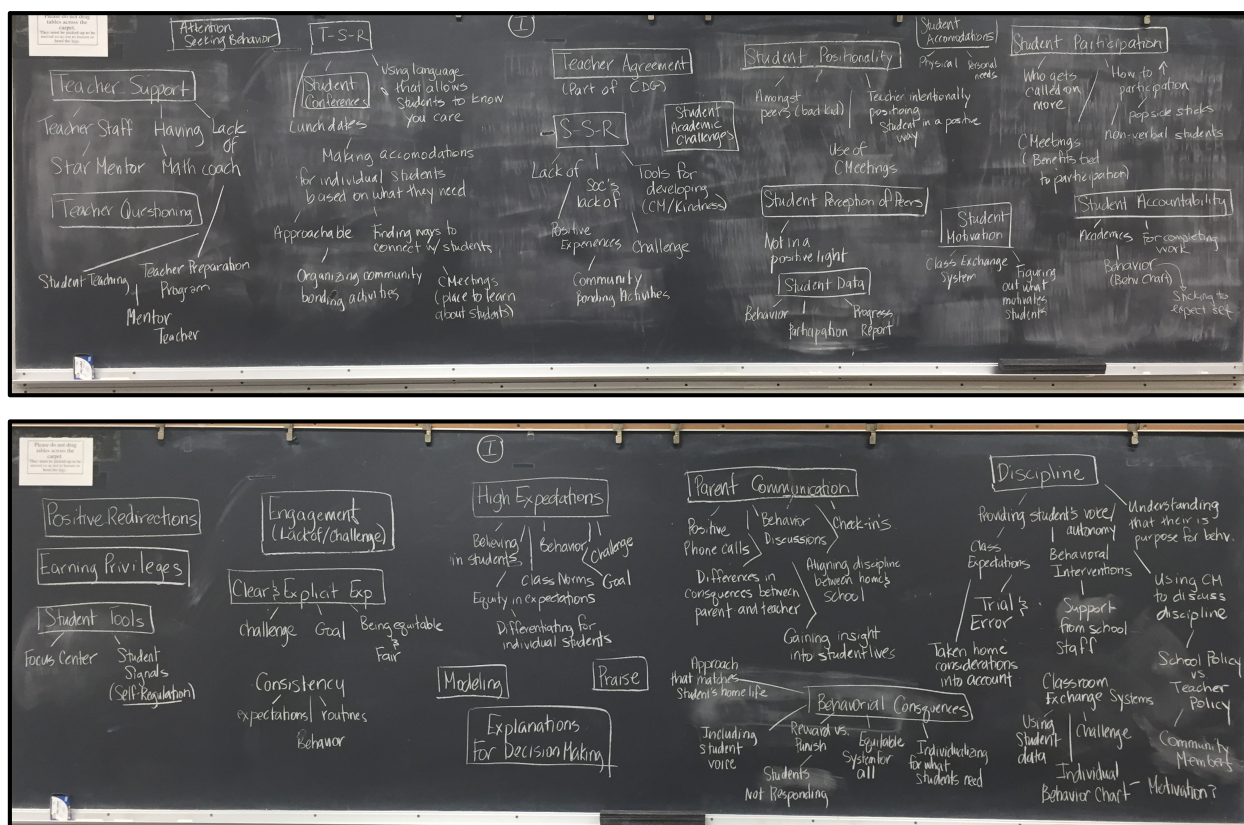 Please do not drag
tables across the
carpet.
Attention
Seeking Behavior
T-S-R
I
Teacher Support
Teacher Staff
Having
Lack
of
Star Mentor
Math coach
Teacher Questioning
Student Teaching
Teacher Preparation
Program
Mentor
Teacher
Student
Conferences
Using language
that allows
Students to know
you care
Lunch dates
Making accomodations
for individual students
based on what they need
Approachable
Finding ways to
connect w/ students
Organizing community
bonding activities
CMeetings
(place to learn
about students)
Teacher Agreement
(Part of CDG)
S-S-R
Student
Academic
Challenges
Lack of
Soc's
lack of
Tools for
developing
(CM/Kindness)
Positive
Experiences
Challenge
Community
Bonding Activities
Student Positionality
Amongst
peers (bad kid)
Teacher intentionally
positioning
Student in a positive
way
Use of
CMeetings
Student Perception of Peers
Not in a
positive light
Student Data
Behavior
Participation
Progress
Report
Student
Accomodations
Physical
Personal
needs
Student Participation
Who gets
called on
more
How to
participation
popsicle sticks
non-verbal students
CMeetings
(Benefits tied
to participation)
Student
Motivation
Class Exchange
System
Figuring
out what
motivates
students
Student Accountability
Academics
for completing
work
Behavior
(Behv Chart)
Sticking to
expect set
Please do not drag
tables across the
carpet.
I
Positive Redirections
Earning Privileges
Student Tools
Focus Center
Student
Signals
(Self-Regulation)
Engagement
(Lack of/Challenge)
Clear & Explicit Exp
Challenge
Goal
Being equitable
&
Fair
Consistency
expectations
routines
Behavior
High Expectations
Believing
in students
Behavior
Challenge
Class Norms
Goal
Equity in expectations
Differentiating for
individual students
Modeling
Praise
Explanations
for Decision Making
Parent Communication
Positive
Phone calls
Behavior
Discussions
Check-in's
Differences in
consquences between
parent and teacher
Aligning discipline
between home &
school
Gaining insight
into student lives
Approach
that matches
Student's home life
Behavorial Consquences
Including
student
voice
Reward vs.
Punish
Equitable
System for
all
Individualizing
for what
students need
Students
Not Responding
Discipline
Providing student's voice/
autonomy
Understanding
that their is
purpose for behv.
Class
Expectations
Behavioral
Interventions
Trial &
Error
Using CM
to discuss
discipline
Support
from school
staff
Taken home
considerations
into account
School Policy
vs
Teacher
Policy
Classroom
Exchange Systems
Using
Student
data
Challenge
Community
Members
Individual
Behavior Chart
Motivation?